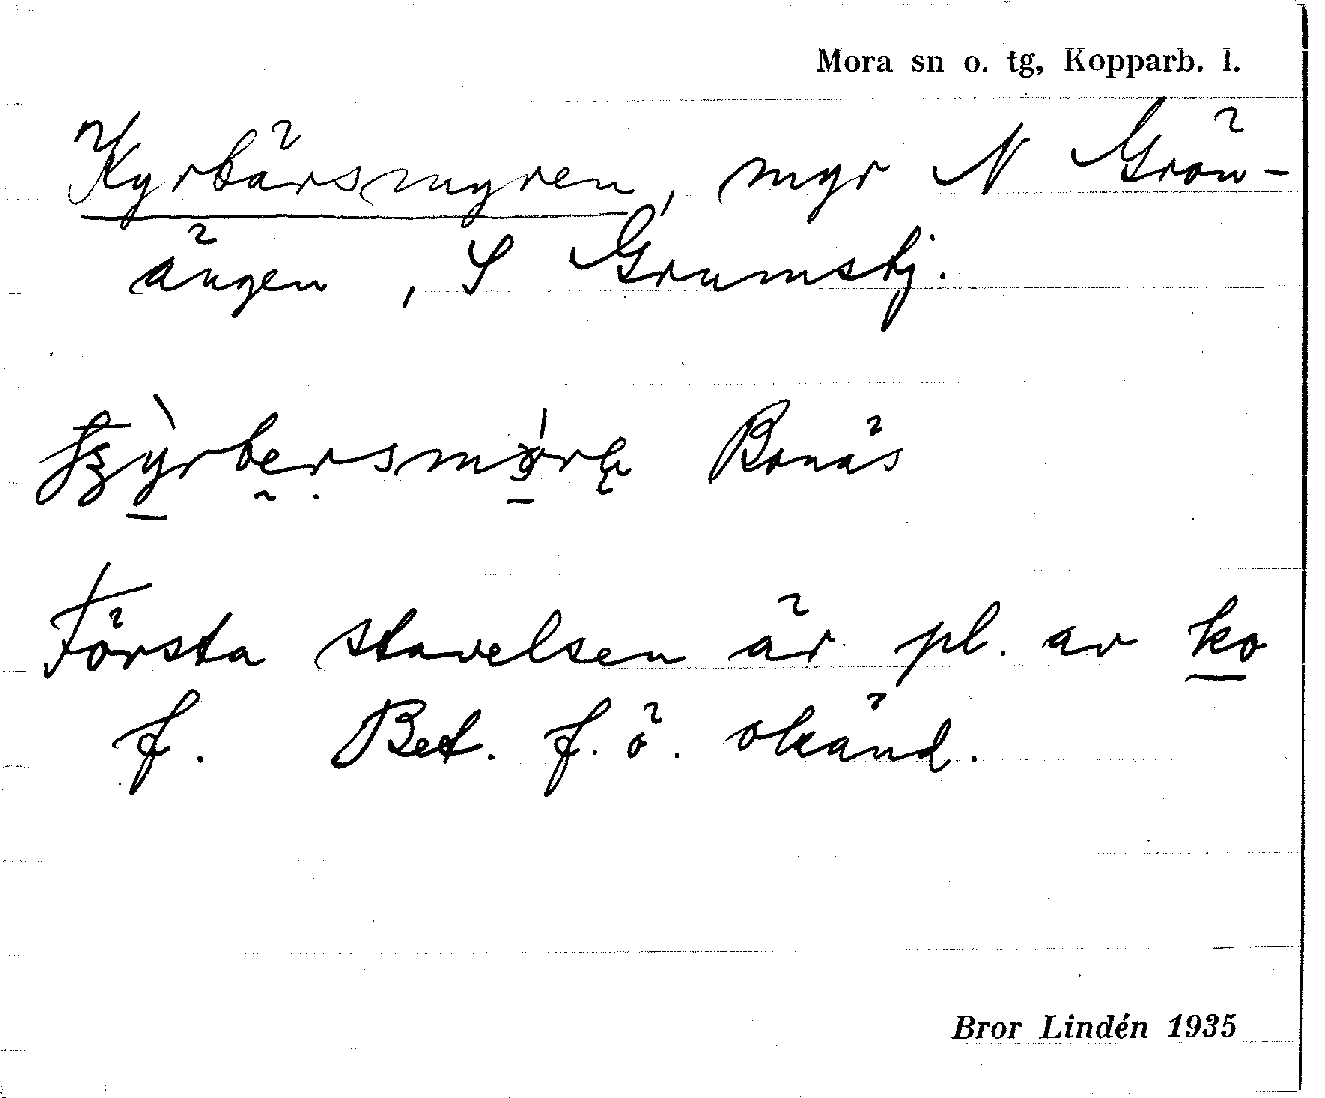 Mora sn o. tg, Kopparb. l.
Kyrbärsmyren, myr N Grön-
ängen, S Grumstj.
Bonäs
Första stavelsen är pl. av ko
f. Bet. f. ö. okänd.
Bror Lindén 1935